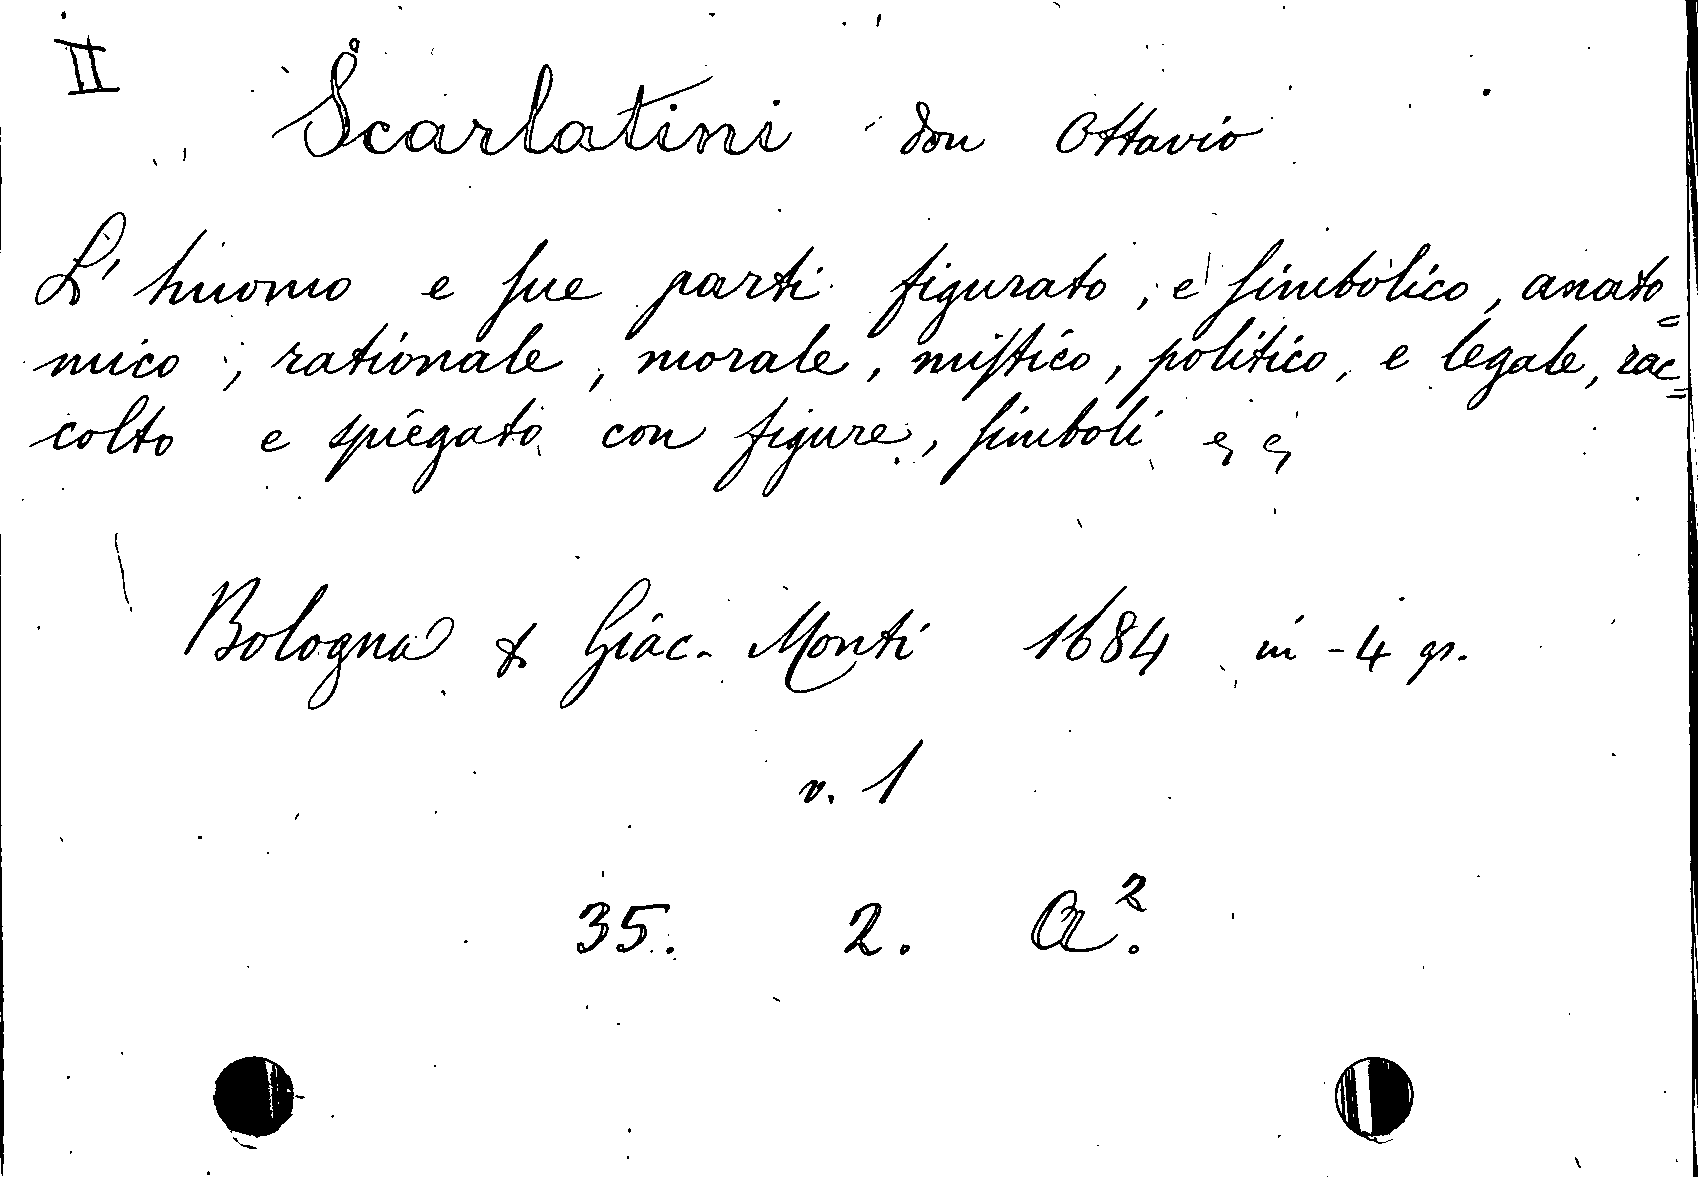 II
Scarlatini don Ottavio
L' huomo e ſue parti figurato, e ſimbolico, anato=
mico, rationale, morale, miſtico, politico, e legale, rac=
colto e spiegato con figure, ſimboli
Bologna Giac. Monti 1684 in-4 gr.
v. 1
35. 2. A².